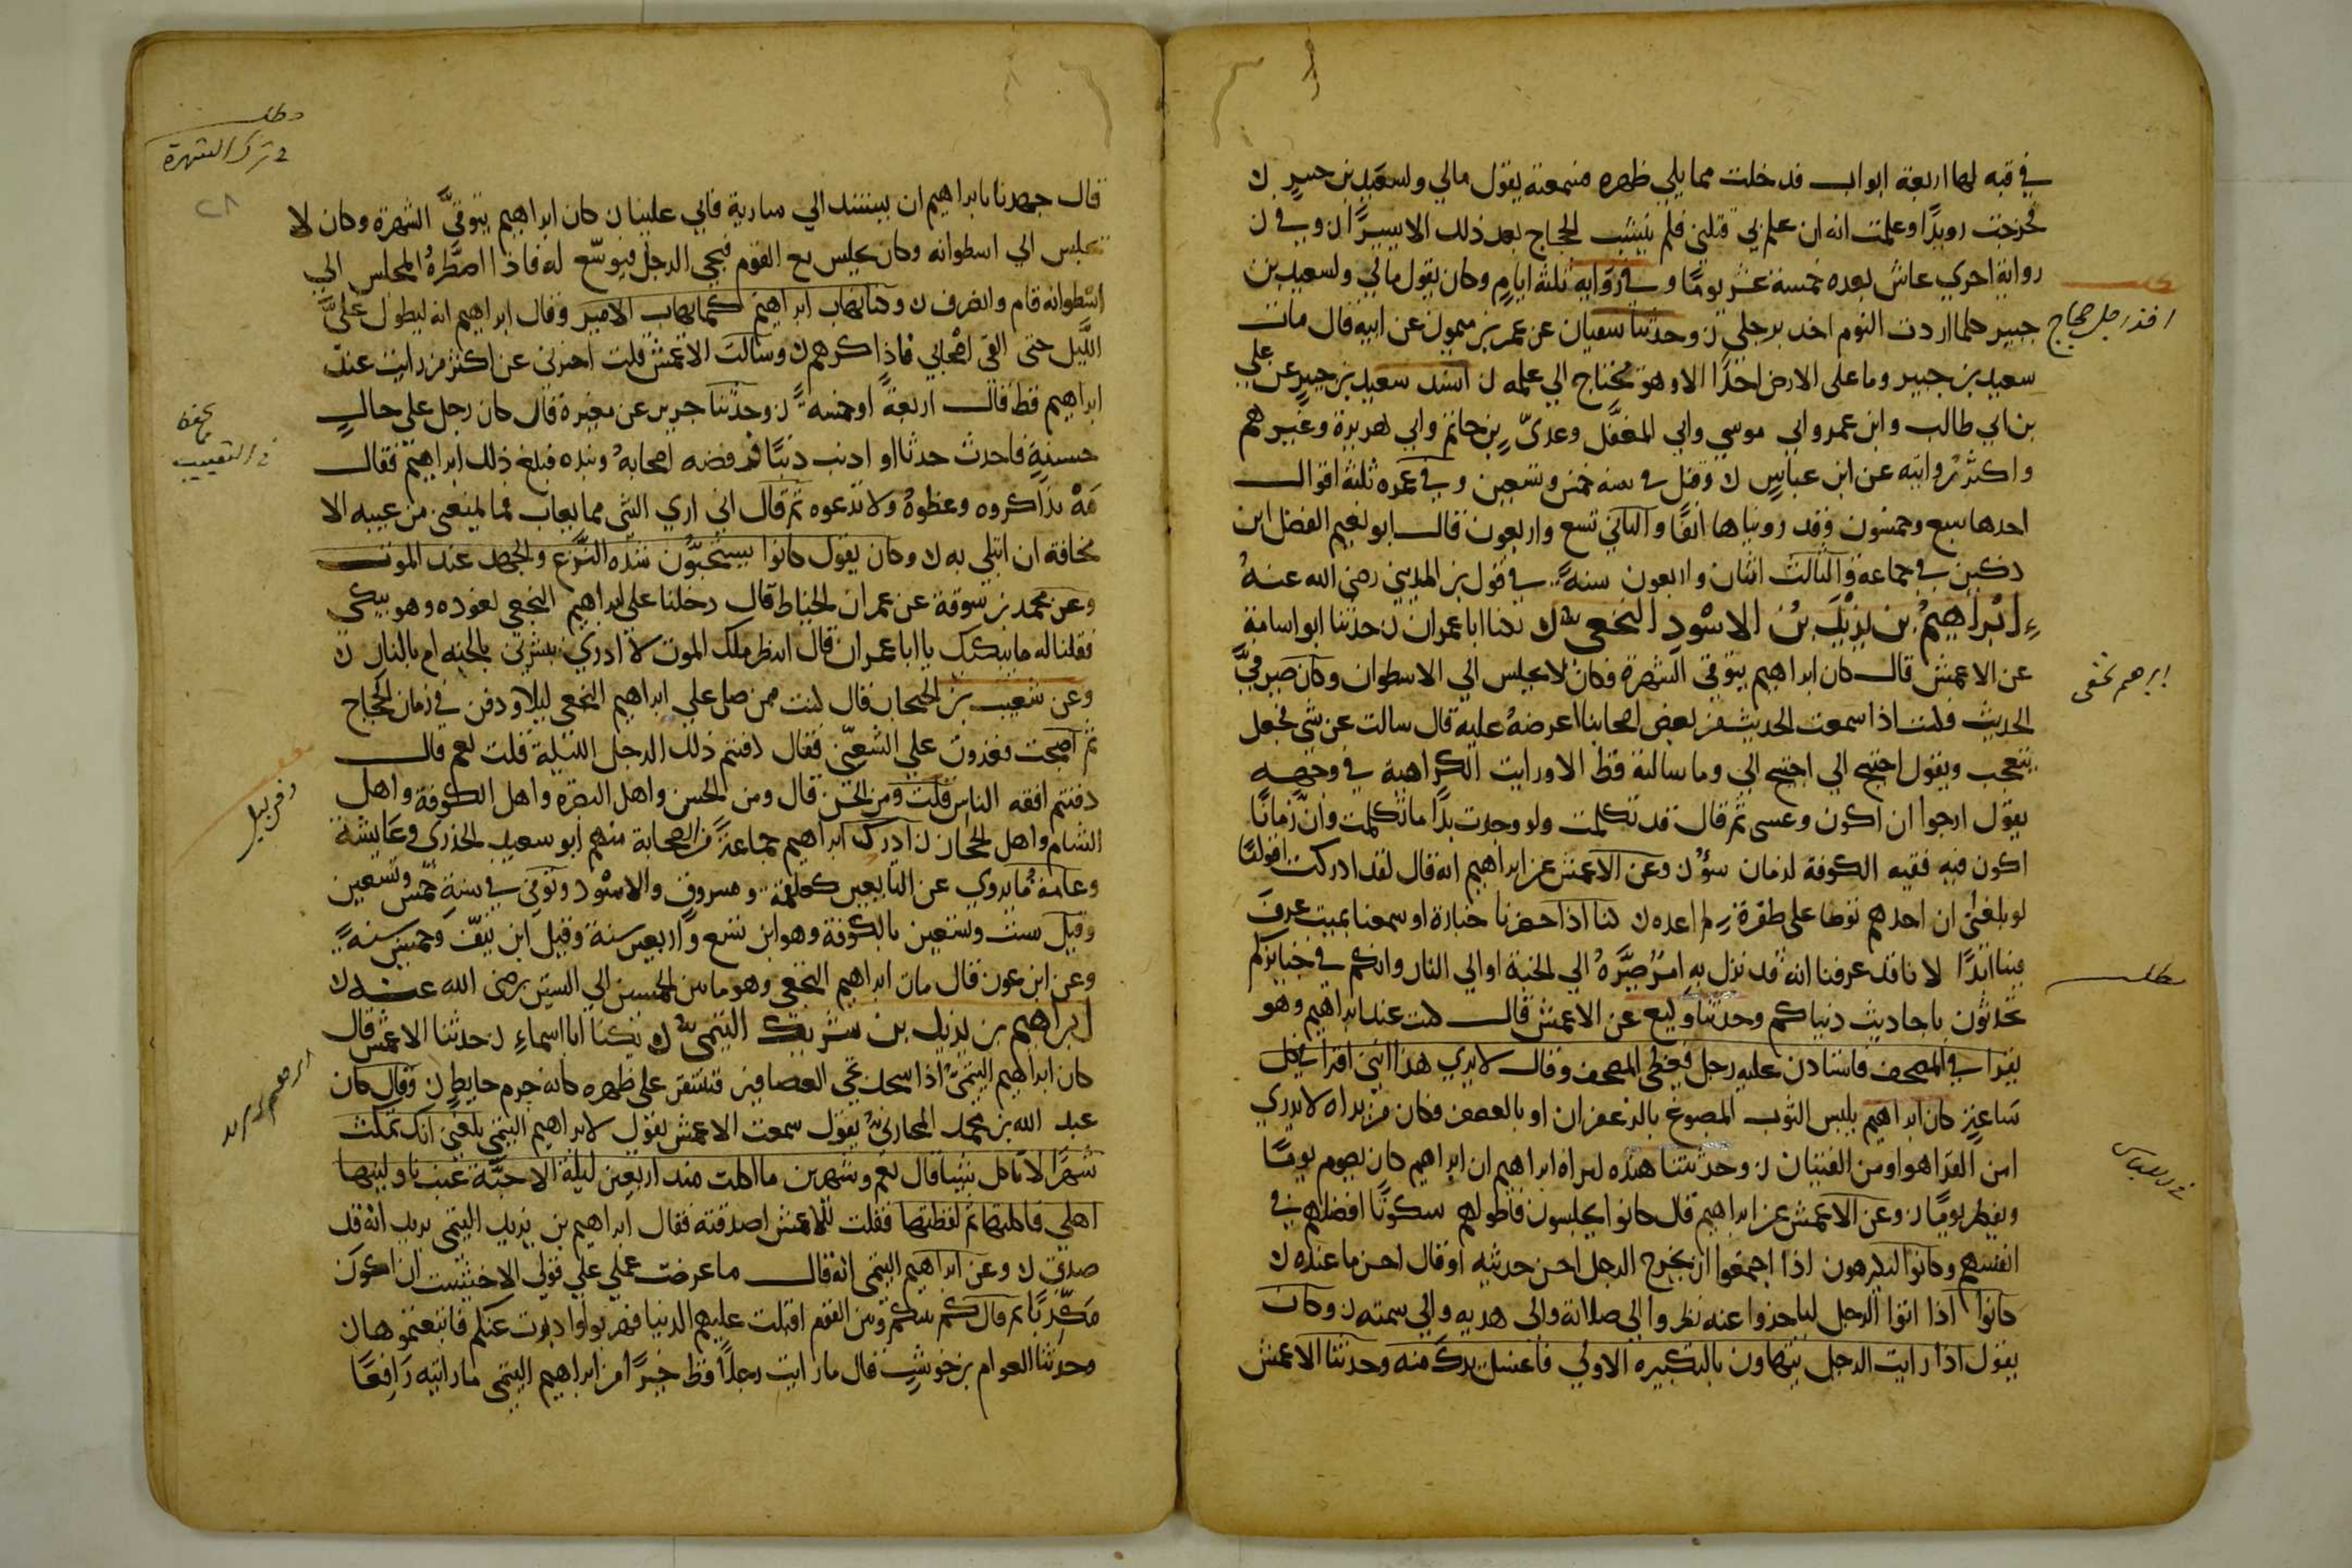 في قبه لها اربعة ابواب فدخلت مما يلي ظهره فسمعته يقول مالي ولسعيد بن جبير
فخرجت رويدًا وعلمت انه ان علم بي قتلني فلم ينشب الحجاج بعد ذلك الا يسيرًا وفي
رواية اخري عاش بعده خمسة عشر يومًا وفي رواية ثلثة ايامٍ وكان يقول مالي ولسعيد بن
جبير كلما اردت النوم اخذ برجلي وحدثنا سفيان عن عمر بن ميمون عن ابيه قال مات
سعيد بن جبير وما على الارض احدًا الا وهو محتاج الي علمه اسند سعيد بن جبيرٍ عن علي
بن ابي طالب وابن عمر وابي موسي وابي المغفَّل وعدىّ بن حاتم وابي هريرة وغيرهم
واكثرُ رواىته عن ابن عباسٍ وقتل في سنه خمس وتسعين وفي عمره ثلثة اقوال
احدها سبع وخمسون وقد رويناها انفًا والثاني تسع واربعون قال ابو نعيم الفضل ابن
دكين في جماعة والثالث اثنان واربعون سنةً في قول بن المديني رضى الله عنهُ
اِبْراهِيمُ بن يَزِيْد بْنُ الاسْودِ النخعي يكنا ابا عمران حدثنا ابو اسامة
عن الاعمش قال كان ابراهيم يتوقى الشهرة فكان لا يجلس الي الاسطوان وكان صيرفيَّ
الحديث فكنت اذا سمعت الحديث من بعض اصحابنا اعرضهُ عليه قال سالت عن شي فجعل
يتعجب ويقول احتيج الي احتيج الي وما سالته قط الا ورايت الكراهية في وجهه
يقول ارجوا ان اكون وعسى ثم قال قد تكلمت ولو وجدت بدًا ما تكلمت وانّ زمانًا
اكون فيه فقيه الكوفة لزمان سؤٍ وعن الاعمش عن ابراهيم انه قال لقد ادركت اقوامًا
لو بلغني ان احدهم توضا على ظفرة لم اعده كنا اذا حضرنا جنازة او سمعنا بميت عرف
فينا ايامًا لانا قد عرفنا انه قد نزل بهِ امرٌ صيَّرهُ الي الجنة او الي النار وانكم في جنايزكم
تحدثون باحاديث دنياكم وحدثنا وكيع عن الاعمش قال كنت عند ابراهيم وهو
يقرا في المصحف فاستاذن عليه رجل فغطى المصحف وقال لا يري هذا انني اقرا فيه كل
ساعةٍ كان ابراهيم يلبس الثوب المصبوغ بالزعفران او بالعصفر وكان من يراه لا يدري
امن القرا هو او من الفتيان وحدثتنا هنده امراة ابراهيم ان ابراهيم كان يصوم يومًا
ويفطر يومًا وعن الاعمش عن ابراهيم قال كانوا يجلسون فاطولهم سكوتًا افضلهم في
انفسهم وكانوا يكرهون اذا اجتمعوا ان يخرج الرجل احسن حديثه او قال احسن ما عنده
كانوا اذا اتوا الرجل لياخذوا عنه نظروا الي صلاته والى هديه والي سمته وكان
يقول اذا رايت الرجل يتهاون بالتكبيره الاولي فاغسل يدك منه وحدثنا الاعمش
اخذ رجل حجاج
ابرهيم نخعى
مطلب
في اللباس
مطلب
في ترك الشهرة
٢٨
قال جهدنا بابراهيم ان يستند الي سارية فابي علينا كان ابراهيم يتوقيَّ الشهرة وكان لا
يجلس الي اسطوانه وكان يجلس مع القوم فيجي الرجل فيوسّع له فاذا اضطَّرهُ المجلس الي
اسْطوانة قام وانصرف وكنا نهاب ابراهيم كما يهاب الامير وقال ابراهيم انه ليطول عليَّ
اللَّيل حتى القى اصْحابي فاذاكرهم وسالت الاعمش قلت اخبرني عن اكثر من رايت عند
ابراهيم قط قال اربعةً او خمسةً وحدثنا جرير عن مغيرة قال كان رجل على حالٍ
حسنةٍ فاحدث حدثا او اذنب ذنبًا فرفضه اصحابهُ ونبذه فبلغ ذلك ابراهيم فقال
مَهْ تذاكروه وعظوهُ ولا تدعوه ثم قال اني اري الشي مما يعاب فما يمنعني من عيبه الا
مخافة ان ابتلي به وكان يقول كانوا يستحبّون شدّه النَّزع والجهد عند الموت
وعن محمد بن سوقة عن عمران الخياط قال دخلنا على ابراهيم النخعي نعوده وهو يبكي
فقلنا له ما يبكيك يا ابا عمران قال انتظر ملك الموت لا ادري يبشرني بالجنه ام بالنار
وعن شعيب بن الحبحاب قال كنت ممن صلى على ابراهيم النخعي ليلاً ودفن في زمان الحجاج
ثم اصبحت فغدوت علي الشعبّي فقال دفنتم ذلك الرجل الليلة قلت نعم قال
دفنتم افقه الناس قلت ومن الحسن قال ومن الحسن واهل البصْرة واهل الكوفة واهل
الشام واهل الحجاز ادرك ابراهيم جماعةً من الصحابة منهم ابو سعيد الخدري وعايشة
وعامةُ ما يروي عن التابعين كعلقمة ومسروق والاسْود وتوفي في سنةِ خمس وتسعين
وقيل ست وتسعين بالكوفة وهو ابن تسع واربعين سنة وقيل ابن نيّف وخمسين سنةً
وعن ابن عون قال مات ابراهيم النخعي وهو ما بين الخمسين الي الستين رضى الله عنه
ابراهيم بن يزيد بن شريك التيمى يكنا ابا اسماءِ حدثنا الاعمش قال
كان ابراهيم التيميُّ اذا سجد تجي العصافير فتستقر على ظهره كانه جرم حايطٍ وقال كان
عبد الله بن محمد المحاربيُّ يقول سمعت الاعمش يقول لابراهيم التيمي بلغني انك تمكث
شهرًا لا تاكل شيئا قال نعم وشهرين ما اكلت منذ اربعين ليلة الا حبَّة عنب ناولنيها
اهلي فاكلتها ثم لفظتها فقلت للاعمش اصدقته فقال ابراهيم بن يزيد التيمي يريد انه قد
صدق وعن ابراهيم التيمي انه قال ما عرضت عملي علي قولي الا خشيت ان اكون
مكّذبًا ثم قال كم بينكم وبين القوم اقبلت عليهم الدنيا فهربوا وادبرت عنكم فاتبعتموها
وحدثنا العوام بن حوشبٍ قال ما رايت رجلاً قط خيرًا من ابراهيم التيمي ما رايته رَافعًا
في التعييب
دفن ليلا